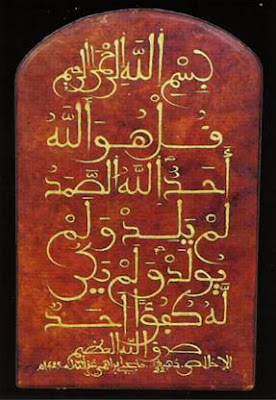 بِسْمِ اللَّهِ الرَّحْمَٰنِ الرَّحِيمِ
قُلْ هُوَ اللَّهُ
أَحَدٌ اللَّهُ الصَّمَدُ
لَمْ يَلِدْ وَلَمْ
يُولَدْ وَلَمْ يَكُن
لَّهُ كُفُوًا أَحَدٌ
صدق الله العظيم